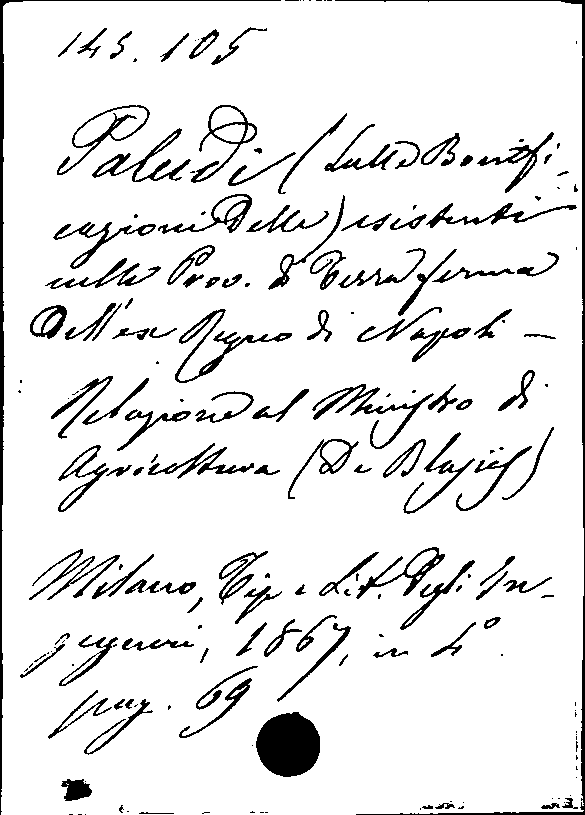 143. 105
Paludi (Sulle Bonifi-
cazioni Delle) esistenti
nelle Prov. di Terra ferma
Dell'ex Regno di Napoli —
Relazione al Ministro di
Agricoltura (De Blasiis)
Milano, Tip e Lit. Degli In-
gegneri, 1867, in 4º
pag. 69